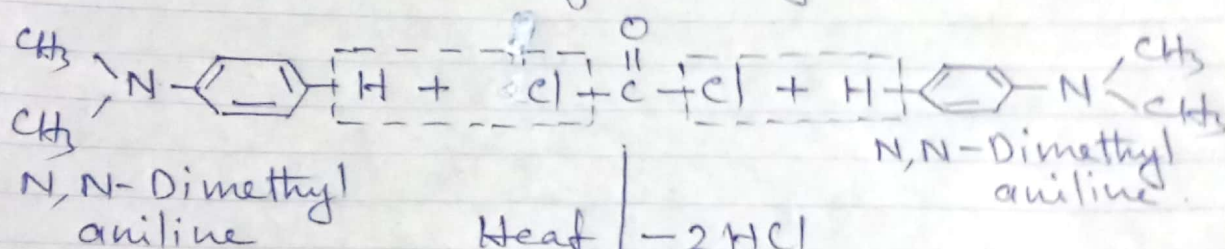 O
CH3 CH3
N H + Cl C Cl + H N
CH3 CH3
N,N-Dimethyl aniline
N,N-Dimethyl aniline.
Heat -2HCl